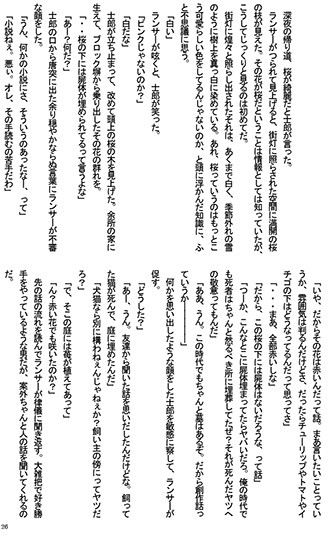 深夜の帰り道、桜が綺麗だと士郎が言った。
ランサーがつられて見上げると、街灯に照らされた空間に満開の桜
の枝が見えた。その花が桜だということは情報としては知っていたが、
こうしてじっくりと見るのは初めてだ。
街灯に煌々と照らし出されたそれは、あくまで白く、季節外れの雪
のように樹上を真っ白に染めている。あれ、桜っていうのはもっとこ
う可愛らしい色をしてるんじゃないのか、と頭に浮かんだ知識に、ふ
と不思議に思う。
「白い」
ランサーが呟くと、士郎が笑った。
「ピンクじゃないのか?」
「白だな」
士郎が立ち止まって、改めて頭上の桜の木を見上げた。余所の家に
生えて、ブロック塀から乗り出したその花の群れを。
「・・桜の下には屍体が埋められてるって言うよな」
「あー?何だ?」
士郎の口から唐突に出た余り穏やかならぬ言葉にランサーが不審
な顔をした。
「うん、何かの小説にさ、そういうのあったなー、って」
「小説ねぇ。悪い、オレ、その手読むの苦手だわ」
「いや、だからその花は赤いんだって話。まあ言いたいことってい
うか、雰囲気は判るんだけどさ、だったらチューリップやトマトやイ
チゴの下はどうなってるんだって思ってさ」
「・・・まあ、全部赤いしな」
「だから、この桜の下には屍体はないだろうな、って話」
「つーか、こんなとこに屍体埋まってたらヤバいだろ。俺の時代で
も死者はちゃんと然るべき所に埋葬してたぜ?それが死んだヤツへ
の敬意ってもんだ」
「ああ、うん。この時代でもちゃんと墓はあるぞ。だから創作話っ
ていうか―――」
何かを思い出したような顔をした士郎を敏感に察して、ランサーが
促す。
「どうした?」
「あー、うん。友達から聞いた話を思いだしたんだけどな。飼って
た猫が死んで、庭に埋めたんだ」
「犬猫なら別に構わねぇんじゃねぇか?飼い主の傍にってヤツだ
ろ?」
「で、そこの庭には苺が植えてあって」
「ん?赤い花でも咲いたのか?」
先の話の流れを読んでランサーが律儀に聞き返す。大雑把で好き勝
手をやっているような男だが、案外ちゃんと人の話を聞いてくれるの
だ。
26